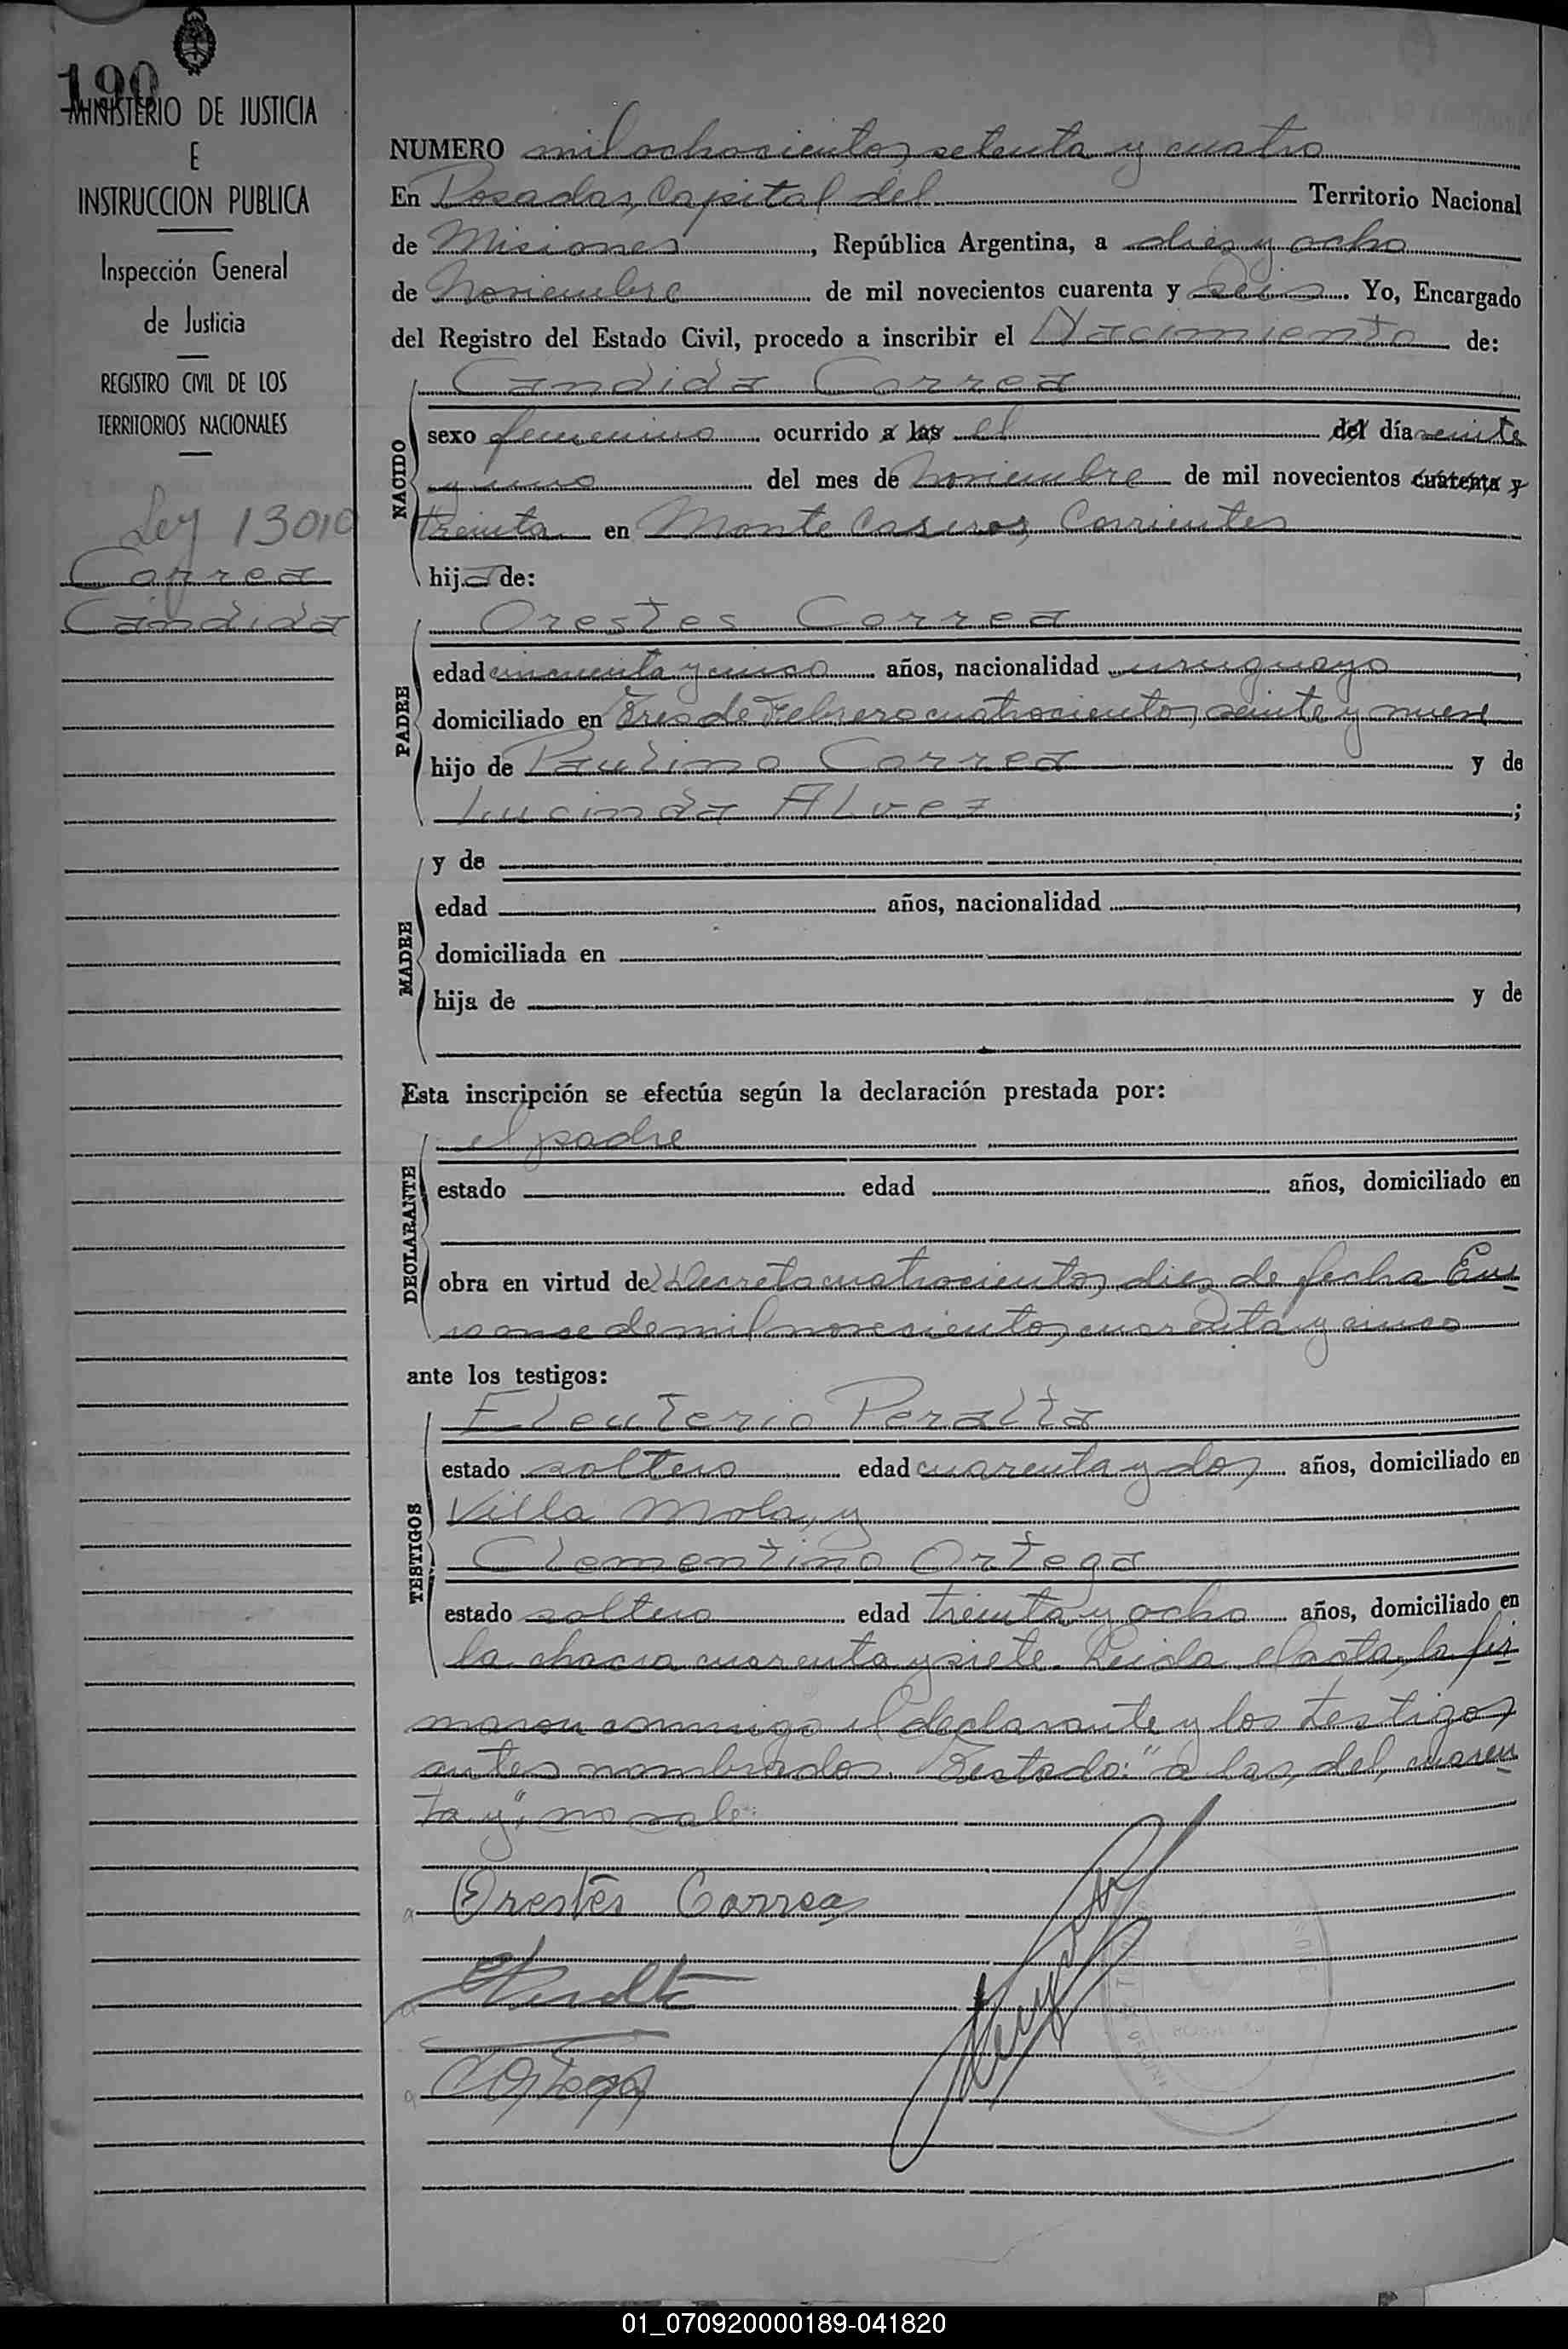 190
MINISTERIO DE JUSTICIA
E
INSTRUCCION PUBLICA
Inspección General
de Justicia
REGISTRO CIVIL DE LOS
TERRITORIOS NACIONALES
Ley 13010
Correa
Candida
NUMERO mil ochocientos setenta y cuatro
En Posadas, Capital del Territorio Nacional
de Misiones, República Argentina, a diez y ocho
de Noviembre de mil novecientos cuarenta y seis. Yo, Encargado
del Registro del Estado Civil, procedo a inscribir el Nacimiento de:
NACIDO
Candida Correa
sexo femenino ocurrido a las el del día veinte
y uno del mes de Noviembre de mil novecientos cuarenta y
treinta en Monte Caseros, Corrientes
hija de:
PADRE
Orestes Correa
edad cincuenta y cinco años, nacionalidad uruguayo,
domiciliado en Tres de Febrero cuatrocientos veinte y nueve
hijo de Paulino Correa y de
Lucinda Alvez;
MADRE
y de
edad años, nacionalidad ,
domiciliada en
hija de y de
Esta inscripción se efectúa según la declaración prestada por:
DECLARANTE
el padre
estado edad años, domiciliado en
obra en virtud de Decreto cuatrocientos diez de fecha Ene
ro once de mil novecientos cuarenta y cinco
ante los testigos:
TESTIGOS
Eleuterio Peralta
estado soltero edad cuarenta y dos años, domiciliado en
Villa Mola, y
Clementino Ortega
estado soltero edad treinta y ocho años, domiciliado en
la chacra cuarenta y siete. Leida el acta, la fir
maron conmigo el declarante y los testigos
antes nombrados. Testado: "a las, del, cuaren
ta y", no vale.
Orestes Correa
EPeralta
COrtega
01_070920000189-041820